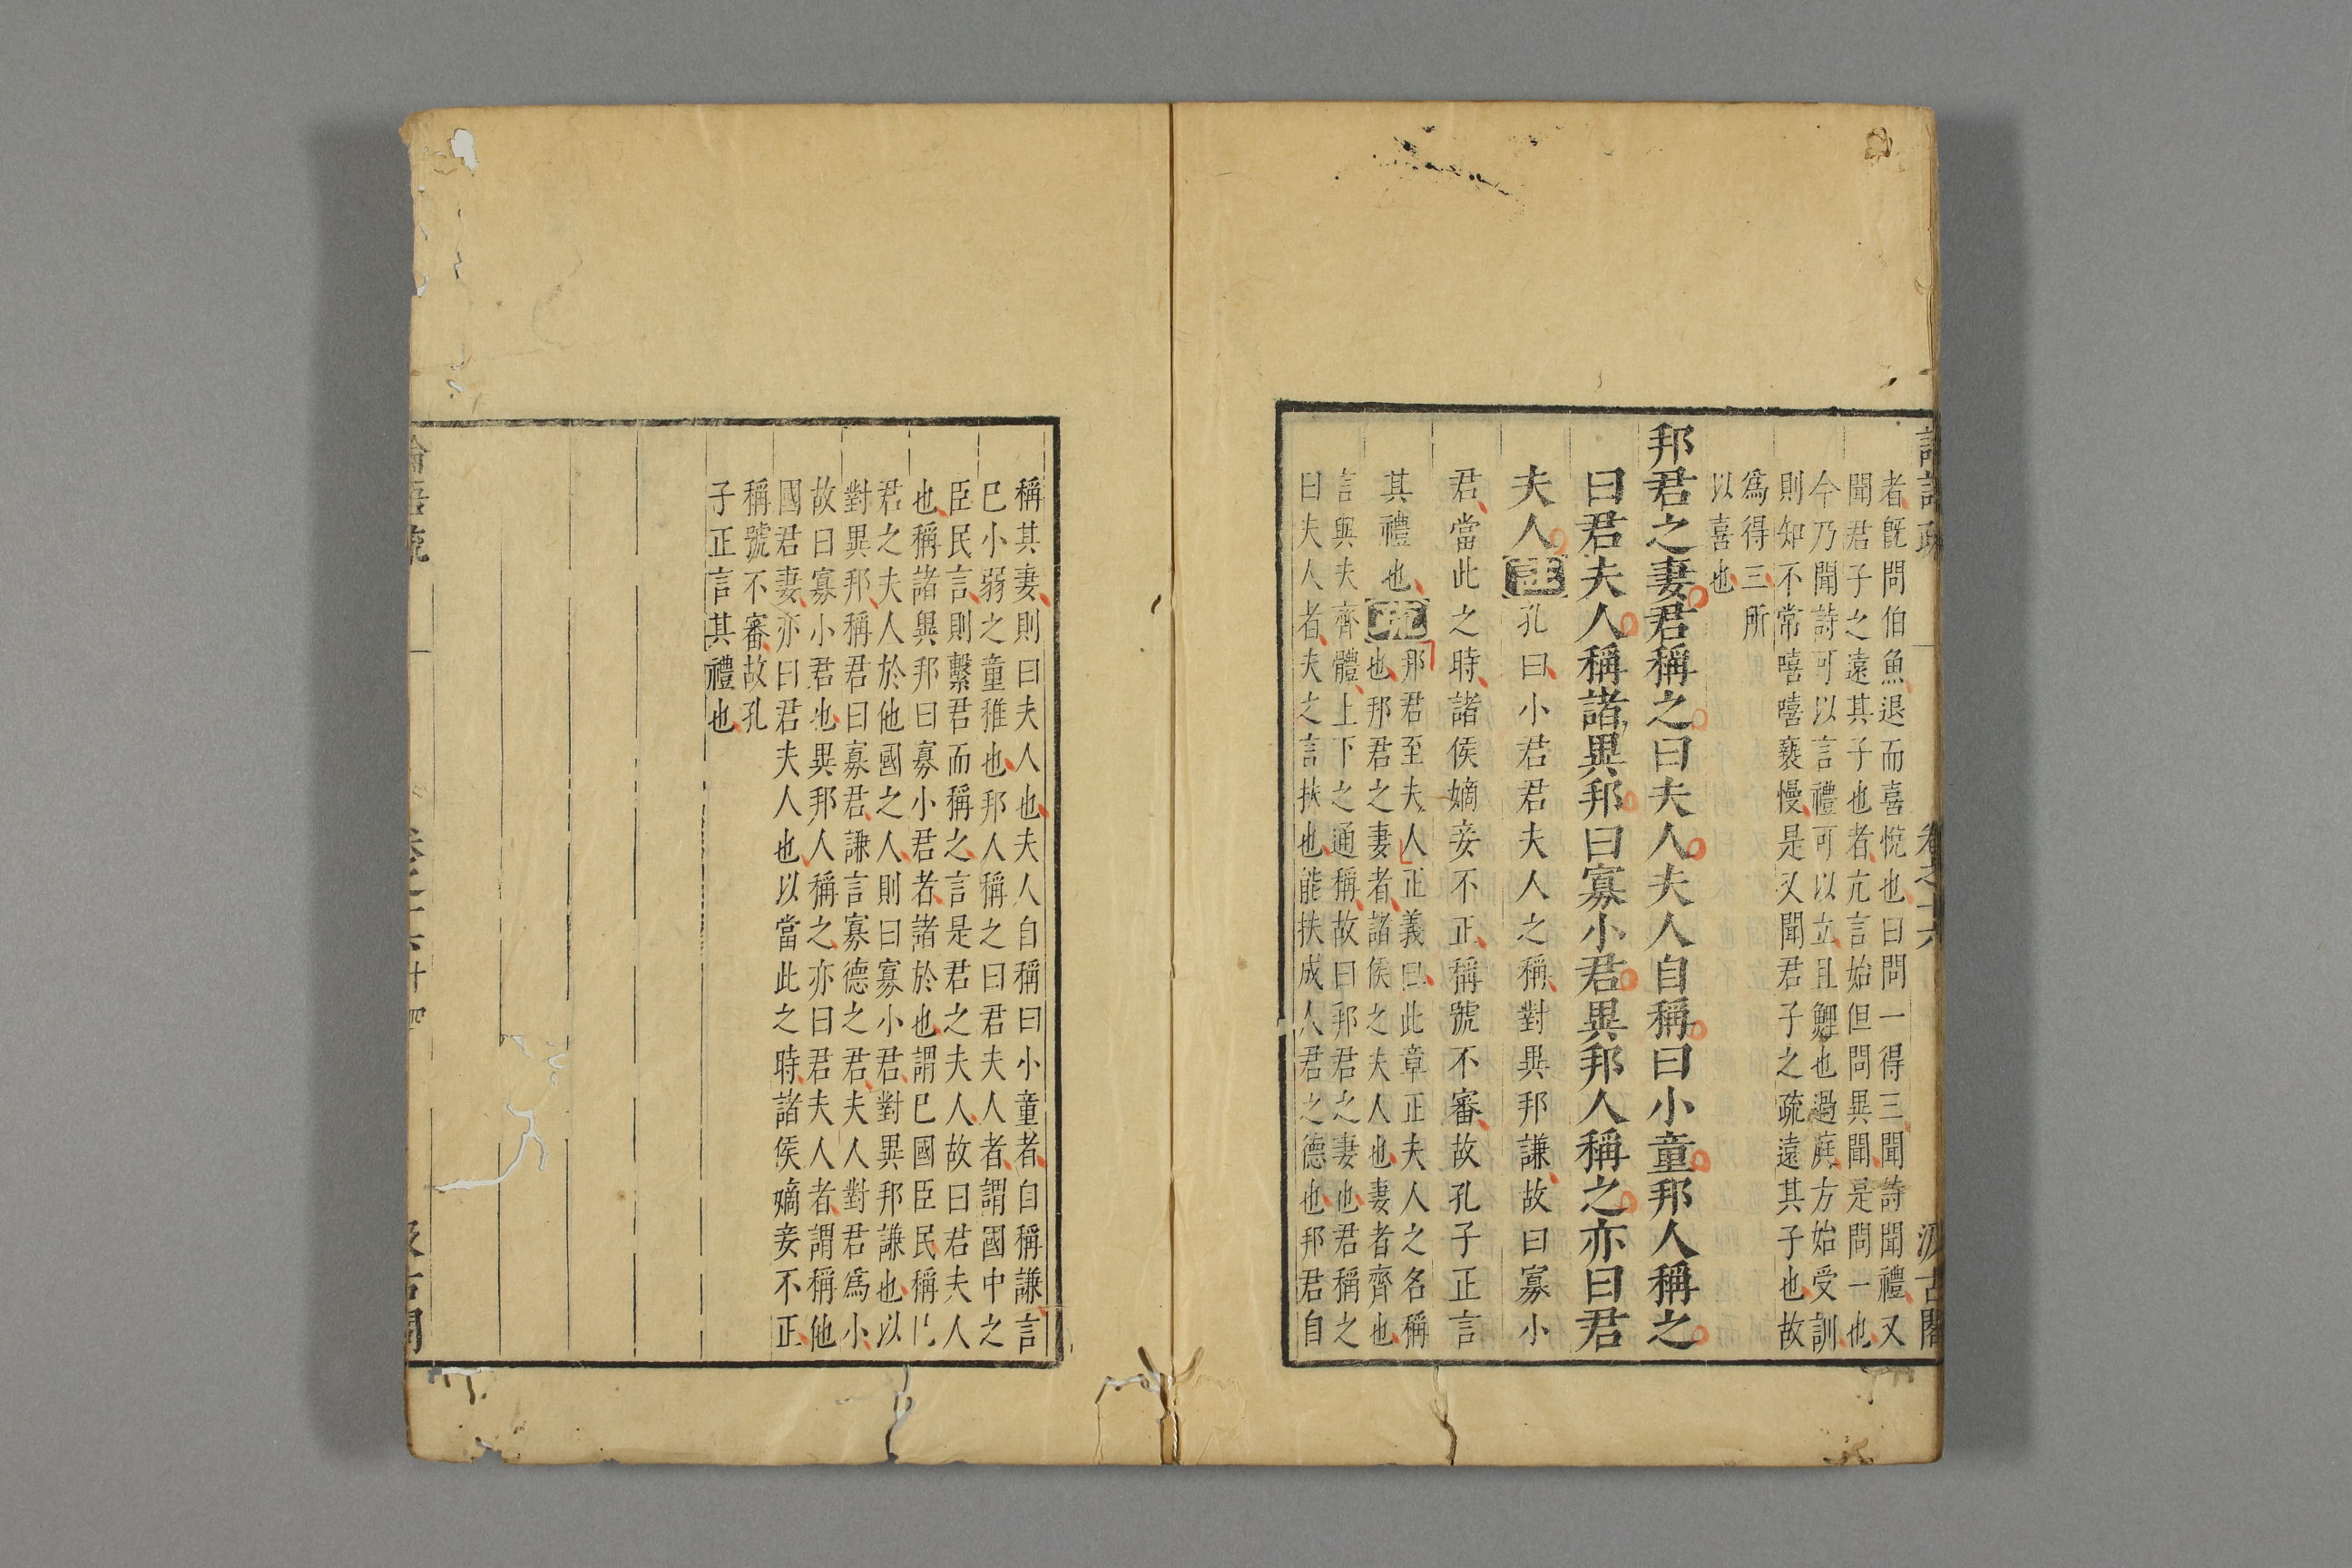 者旣問伯魚退而喜悅也曰問一得三聞詩聞禮又
聞君子之遠其子也者亢言始但問異聞是問一也
今乃聞詩可以言禮可以立且鯉也過庭方始受訓
則知不常嘻嘻褻慢是又聞君子之疏遠其子也故
爲得三所
以喜也
邦君之妻君稱之曰夫人夫人自稱曰小童邦人稱之
曰君夫人稱諸異邦曰寡小君異邦人稱之亦曰君
夫人註孔曰小君君夫人之稱對異邦謙故曰寡小
君當此之時諸侯嫡妾不正稱號不審故孔子正言
其禮也疏
邦君至夫人正義曰此章正夫人之名稱
也邦君之妻者諸侯之夫人也妻者齊也
言與夫齊體上下之通稱故曰邦君之妻也君稱之
曰夫人者夫之言扶也能扶成人君之德也邦君自
稱其妻則曰夫人也夫人自稱曰小童者自稱謙言
巳小弱之童稚也邦人稱之曰君夫人者謂國中之
臣民言則繫君而稱之言是君之夫人故曰君夫人
也稱諸異邦曰寡小君者諸於也謂巳國臣民稱巳
君之夫人於他國之人則曰寡小君對異邦謙也以
對異邦稱君曰寡君謙言寡德之君夫人對君爲小
故曰寡小君也異邦人稱之亦曰君夫人者謂稱他
國君妻亦曰君夫人也以當此之時諸侯嫡妾不正
稱號不審故孔
子正言其禮也